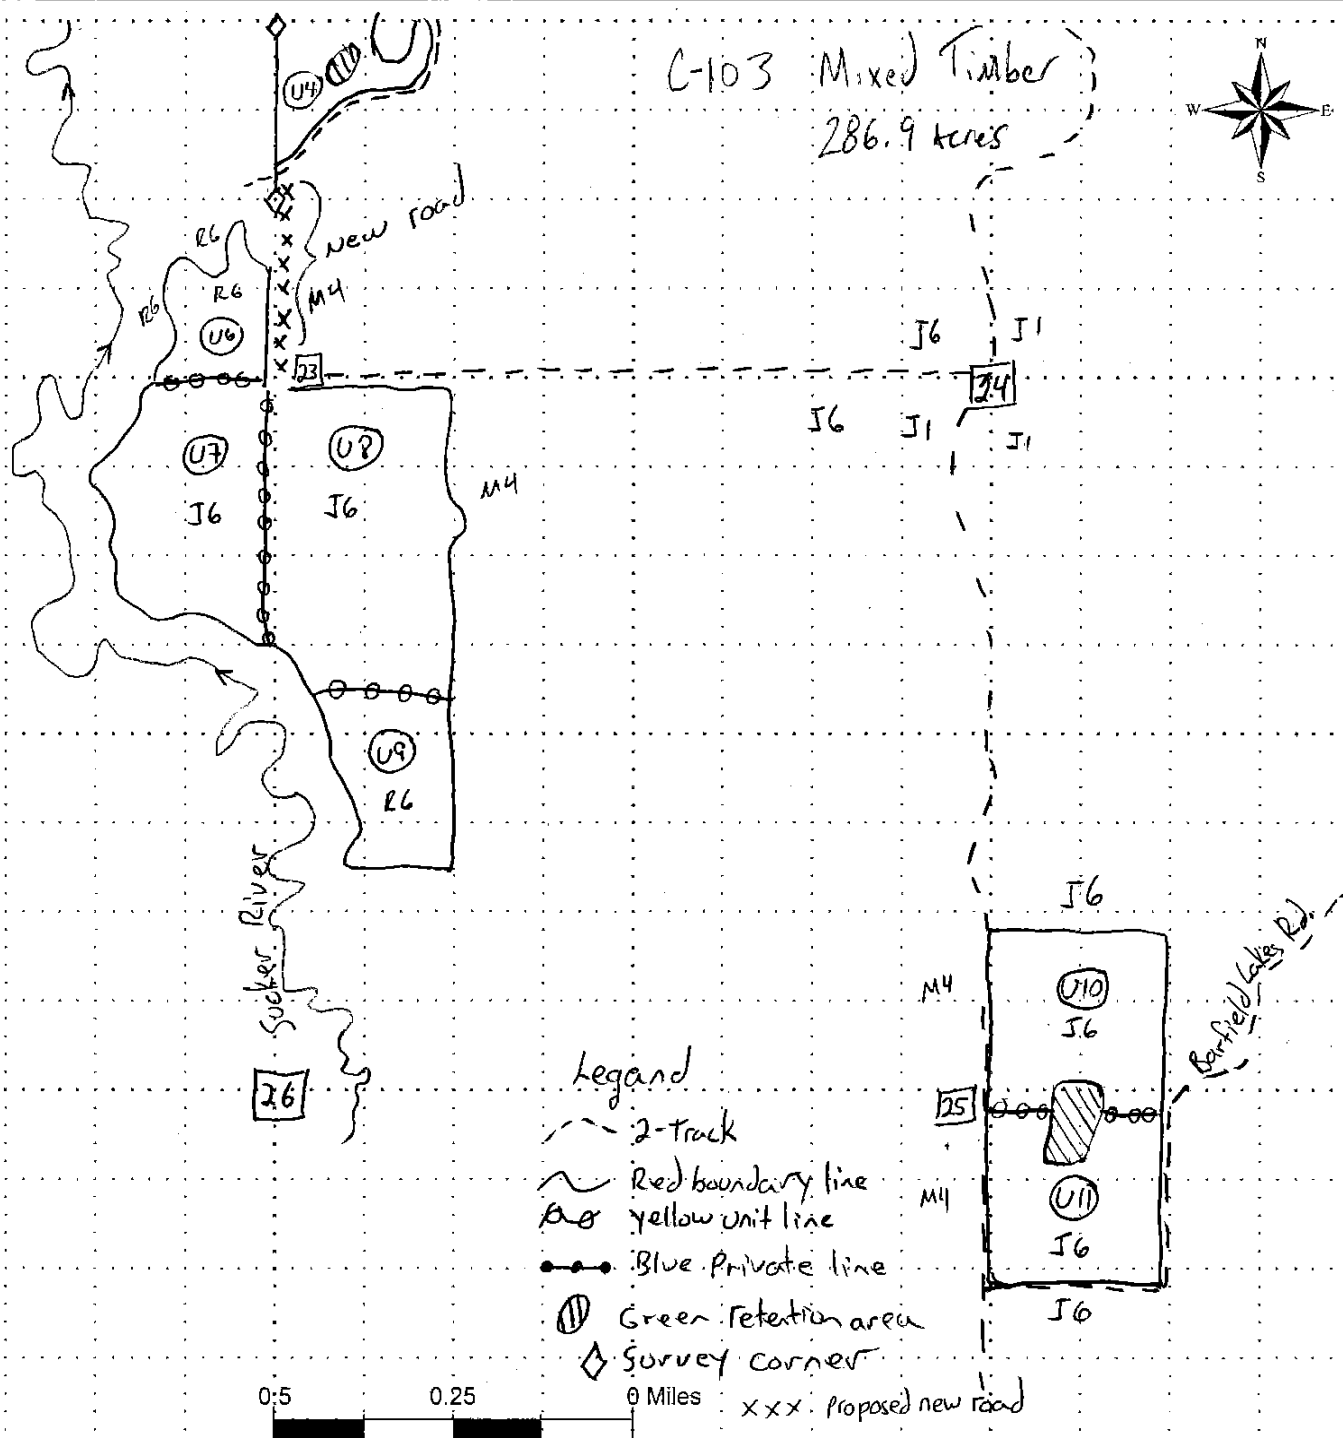 C-103 Mixed Timber
286.9 Acres
N
W E
S
U4
New road
M4
R6
R6
R6
U6
23
J6 J1
24
J6 J1 J1
U7
J6
U8
J6
M4
U9
R6
Sucker River
26
J6
M4
U10
J6
Barfield Lakes Rd.
25
M4
U11
J6
J6
Legand
2-Track
Red boundary line
yellow unit line
Blue Private line
Green retention area
Survey corner
xxx proposed new road
0.5 0.25 0 Miles